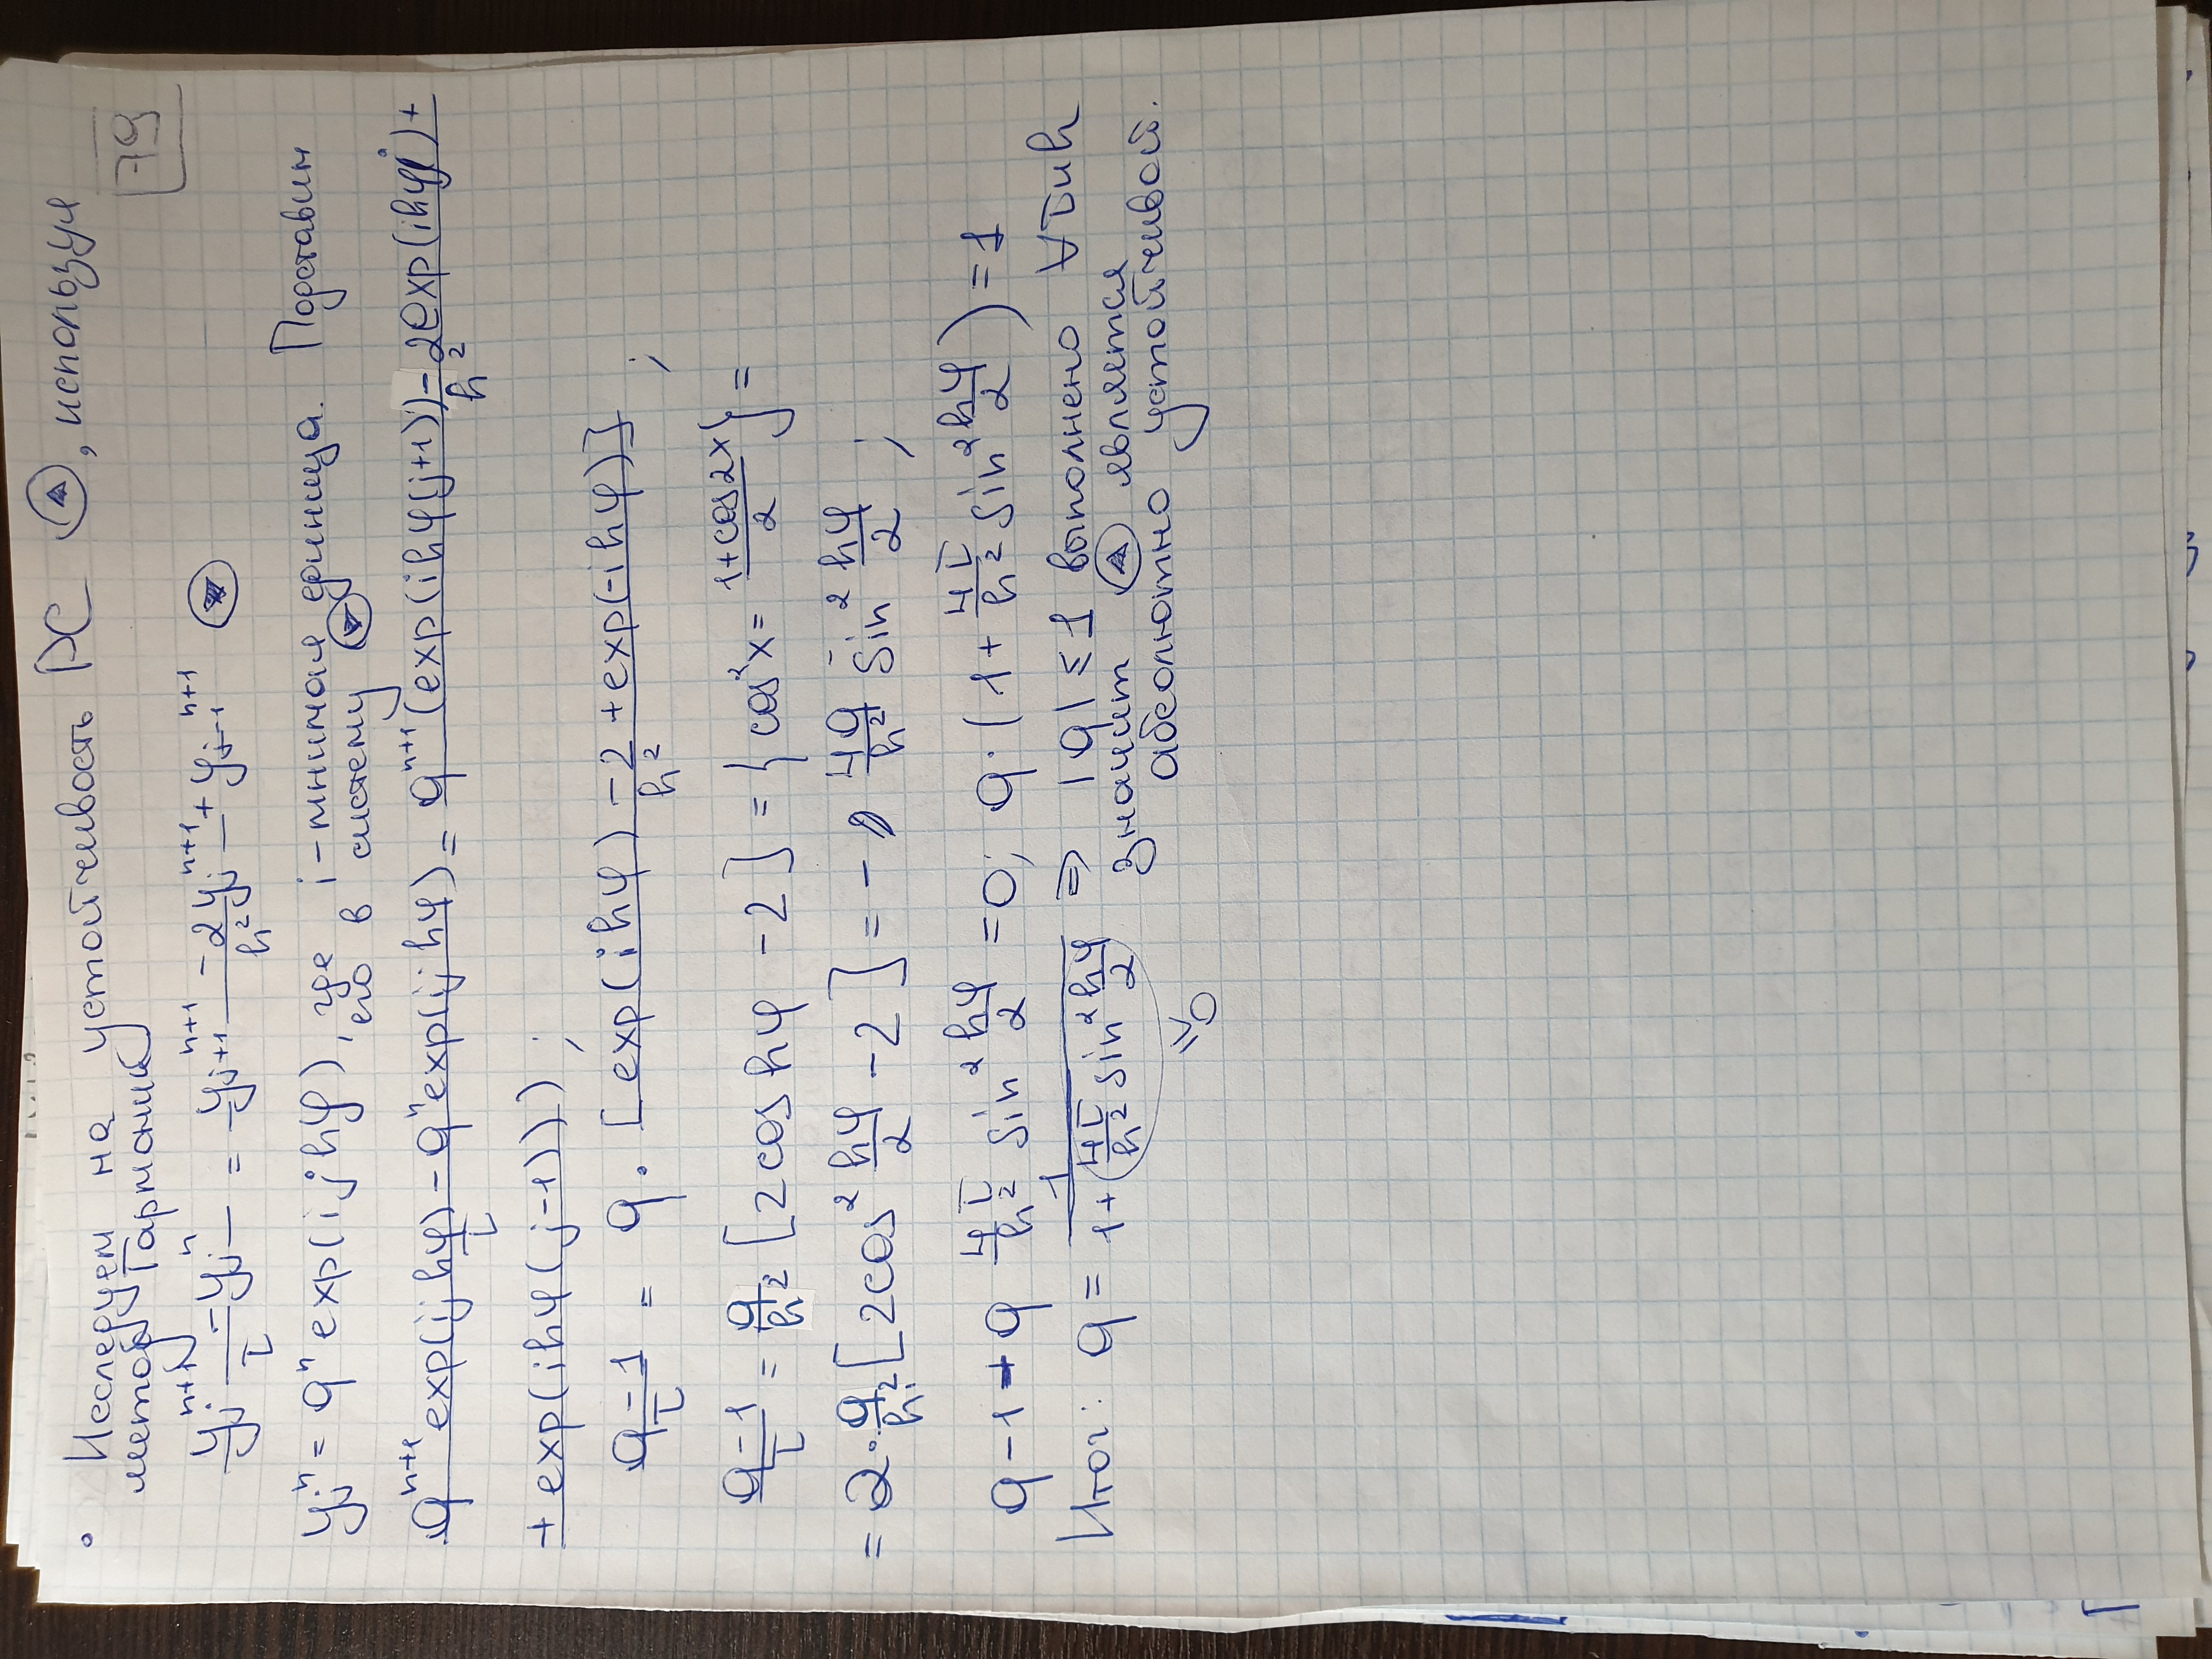 • Исследуем на устойчивость РС (▲), используя
метод Гармоник
79
(y_j^{n+1} - y_j^n)/τ = (y_{j+1}^{n+1} - 2y_j^{n+1} + y_{j-1}^{n+1})/h²
y_j^n = q^n exp(ijhφ), где i - мнимая единица. Подставим
его в систему (▼)
(q^{n+1} exp(ijhφ) - q^n exp(ijhφ))/τ = q^{n+1}(exp(ihφ(j+1)) - 2exp(ihφj) +
+ exp(ihφ(j-1)))/h² ;
(q-1)/τ = q · [exp(ihφ) - 2 + exp(-ihφ)]/h² ;
(q-1)/τ = q/h² [2cos hφ - 2] = {cos²x = (1+cos2x)/2} =
= 2·q/h² [2cos² hφ/2 - 2] = - 4q/h² sin² hφ/2 ;
q - 1 + q 4τ/h² sin² hφ/2 = 0; q·(1 + 4τ/h² sin² hφ/2) = 1
Итог: q = 1/(1 + 4τ/h² sin² hφ/2) ⇒ |q| ≤ 1 выполнено ∀τ и h
≥0
значит (▲) является
абсолютно устойчивой.